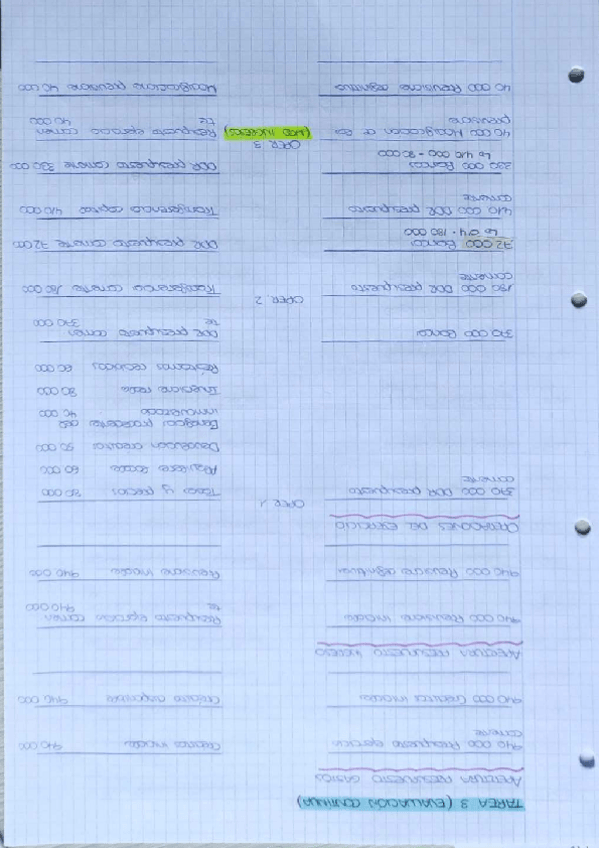 TAREA 3 (EVALUACIÓN CONTINUA)
APERTURA PRESUPUESTO GASTOS
940 000 Presupuesto ejercicio corriente
Créditos iniciales 940 000
940 000 Créditos iniciales
Créditos disponibles 940 000
APERTURA PRESUPUESTO INGRESO
940 000 Previsiones iniciales
Presupuesto ejercicio corrien
te 940 000
940 000 Previsiones definitivas
Previsiones iniciales 940 000
OPERACIONES DEL EJERCICIO
OPER. 1
390 000 DDR presupuesto
corriente
Tasas y precios
Devolución créditos 50 000
40 000
Inversiones reales
Préstamos recibidos
390 000 Bancos
DDR presupuesto corrien
te 390 000
OPER. 2
180 000 DDR presupuesto
corriente
Transferencias corrientes 180 000
72 000 Bancos
↳ 0'4 · 180 000
DDR presupuesto corriente 72 000
410 000 DDR presupuesto
corriente
Transferencias capital 410 000
330 000 Bancos
↳ 410 000 - 80 000
DDR presupuesto corriente 330 000
OPER. 3
(MOD INGRESOS)
40 000 Modificaciones de las
previsiones
Presupuesto ejercicio corrien
te 40 000
40 000 Previsiones definitivas
Modificaciones previsiones 40 000